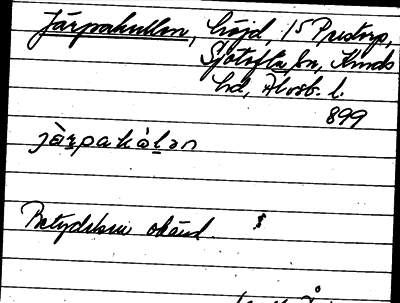 Järpakullen, höjd, 15 Pustorp,
Sjötofta sn, Kinds
hd, Älvsb. l.
899
järpakälən
Betydelsen okänd.